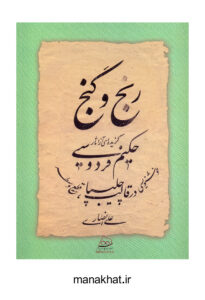 رنج و گنج
گزیده‌ای از آثار
حکیم فردوسی
در قالب چلیپا
علی انصاری
manakhat.ir